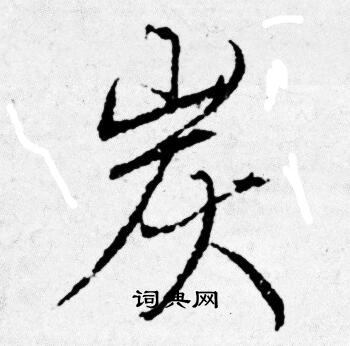 炭
词典网